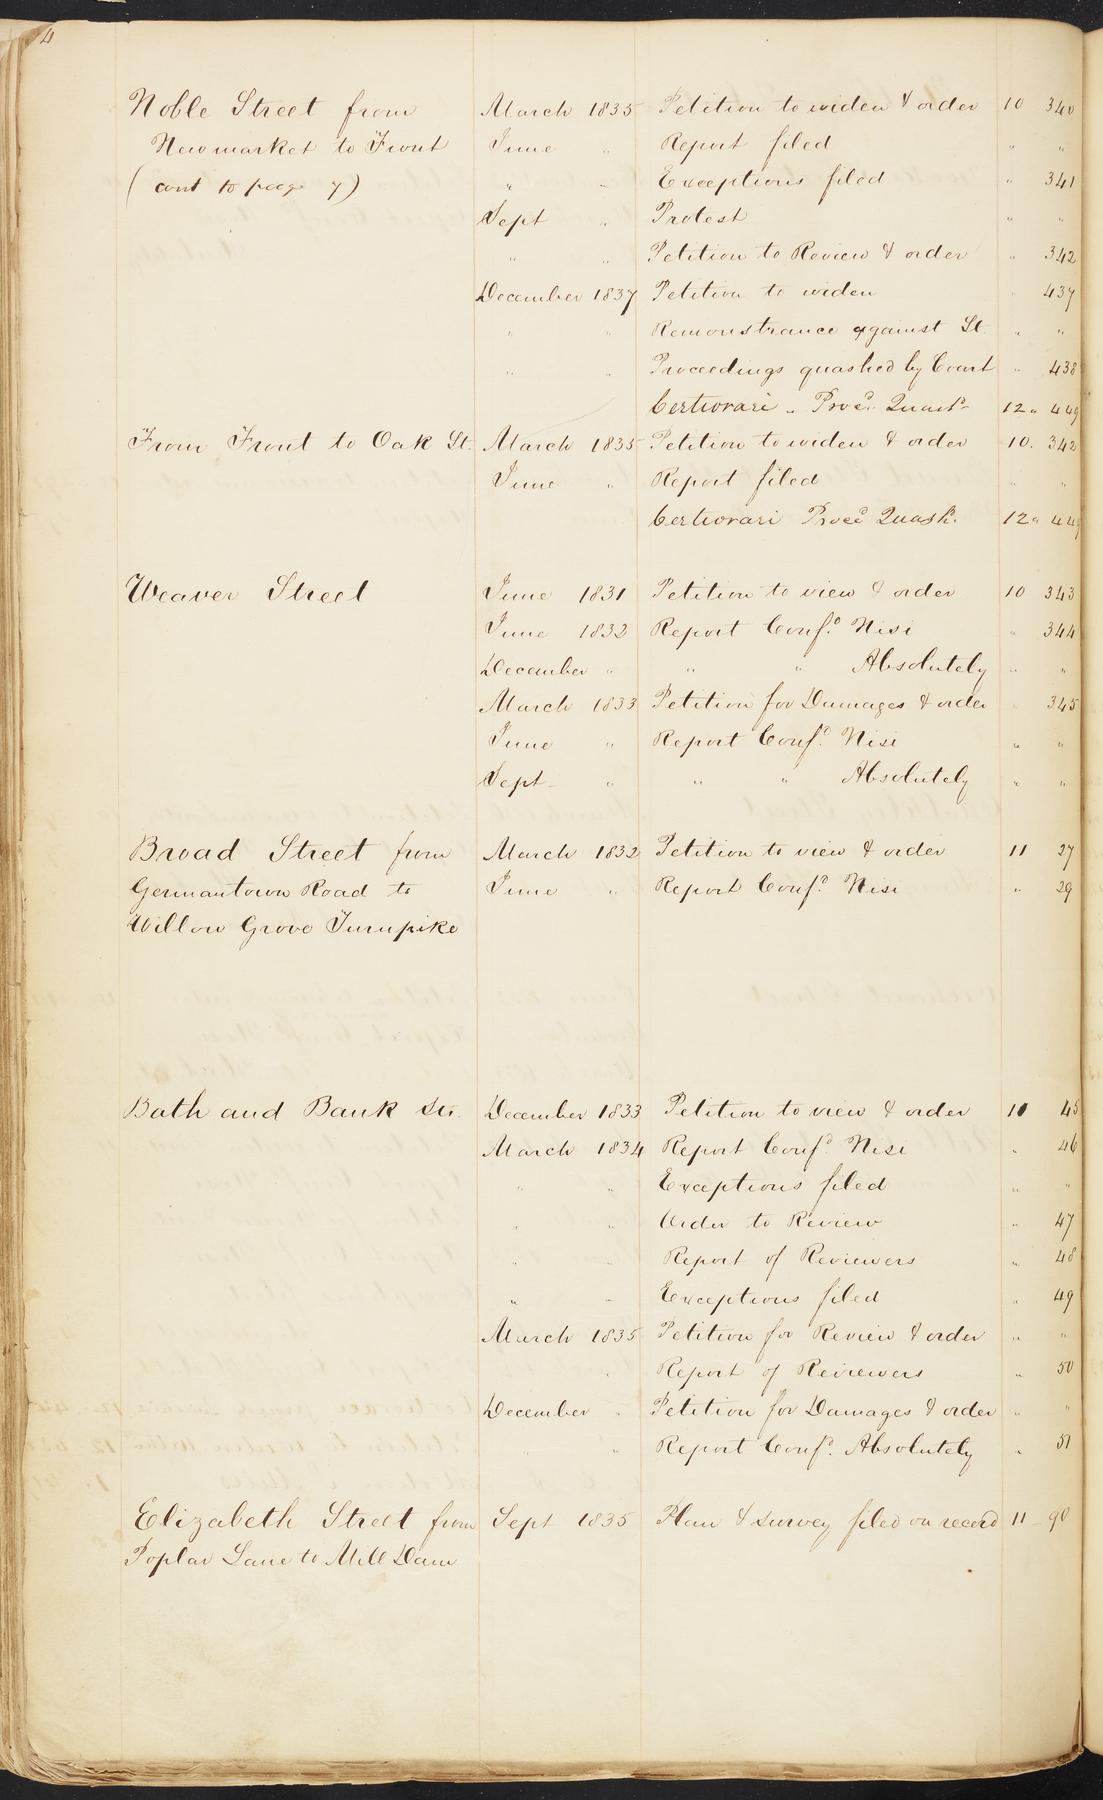 4
Noble Street from March 1835 Petition to widen & order 10 340
Newmarket to Front June " Report filed " "
(cont to page 7) " " Exceptions filed " 341
Sept " Protest " "
" " Petition to Review & order " 342
December 1837 Petition to widen " 437
" " Remonstrance against St. " "
" " Proceedings quashed by Court " 438
Certiorari " Procd. Quashd 12a 449
From Front to Oak St. March 1835 Petition to widen & order 10. 342
June " Report filed " "
Certiorari Procd Quashd. 12a 449
Weaver Street June 1831 Petition to view & order 10 343
June 1832 Report Confd. Nisi " 344
December " " " Absolutely " "
March 1833 Petition for Damages & order " 345
June " Report Confd. Nisi " "
Sept " " " Absolutely " "
Broad Street from March 1832 Petition to view & order 11 27
Germantown Road to June " Report Confd. Nisi " 29
Willow Grove Turnpike
Bath and Bank Sts. December 1833 Petition to view & order 11 45
March 1834 Report Confd. Nisi " 46
" " Exceptions filed " "
" " Order to Review " 47
" " Report of Reviewers " 48
" " Exceptions filed " 49
March 1835 Petition for Review & order " "
" Report of Reviewers " 50
December " Petition for Damages & order " "
" " Report Confd. Absolutely " 51
Elizabeth Street from Sept 1835 Plan & survey filed on record 11 90
Poplar Lane to Mill Dam